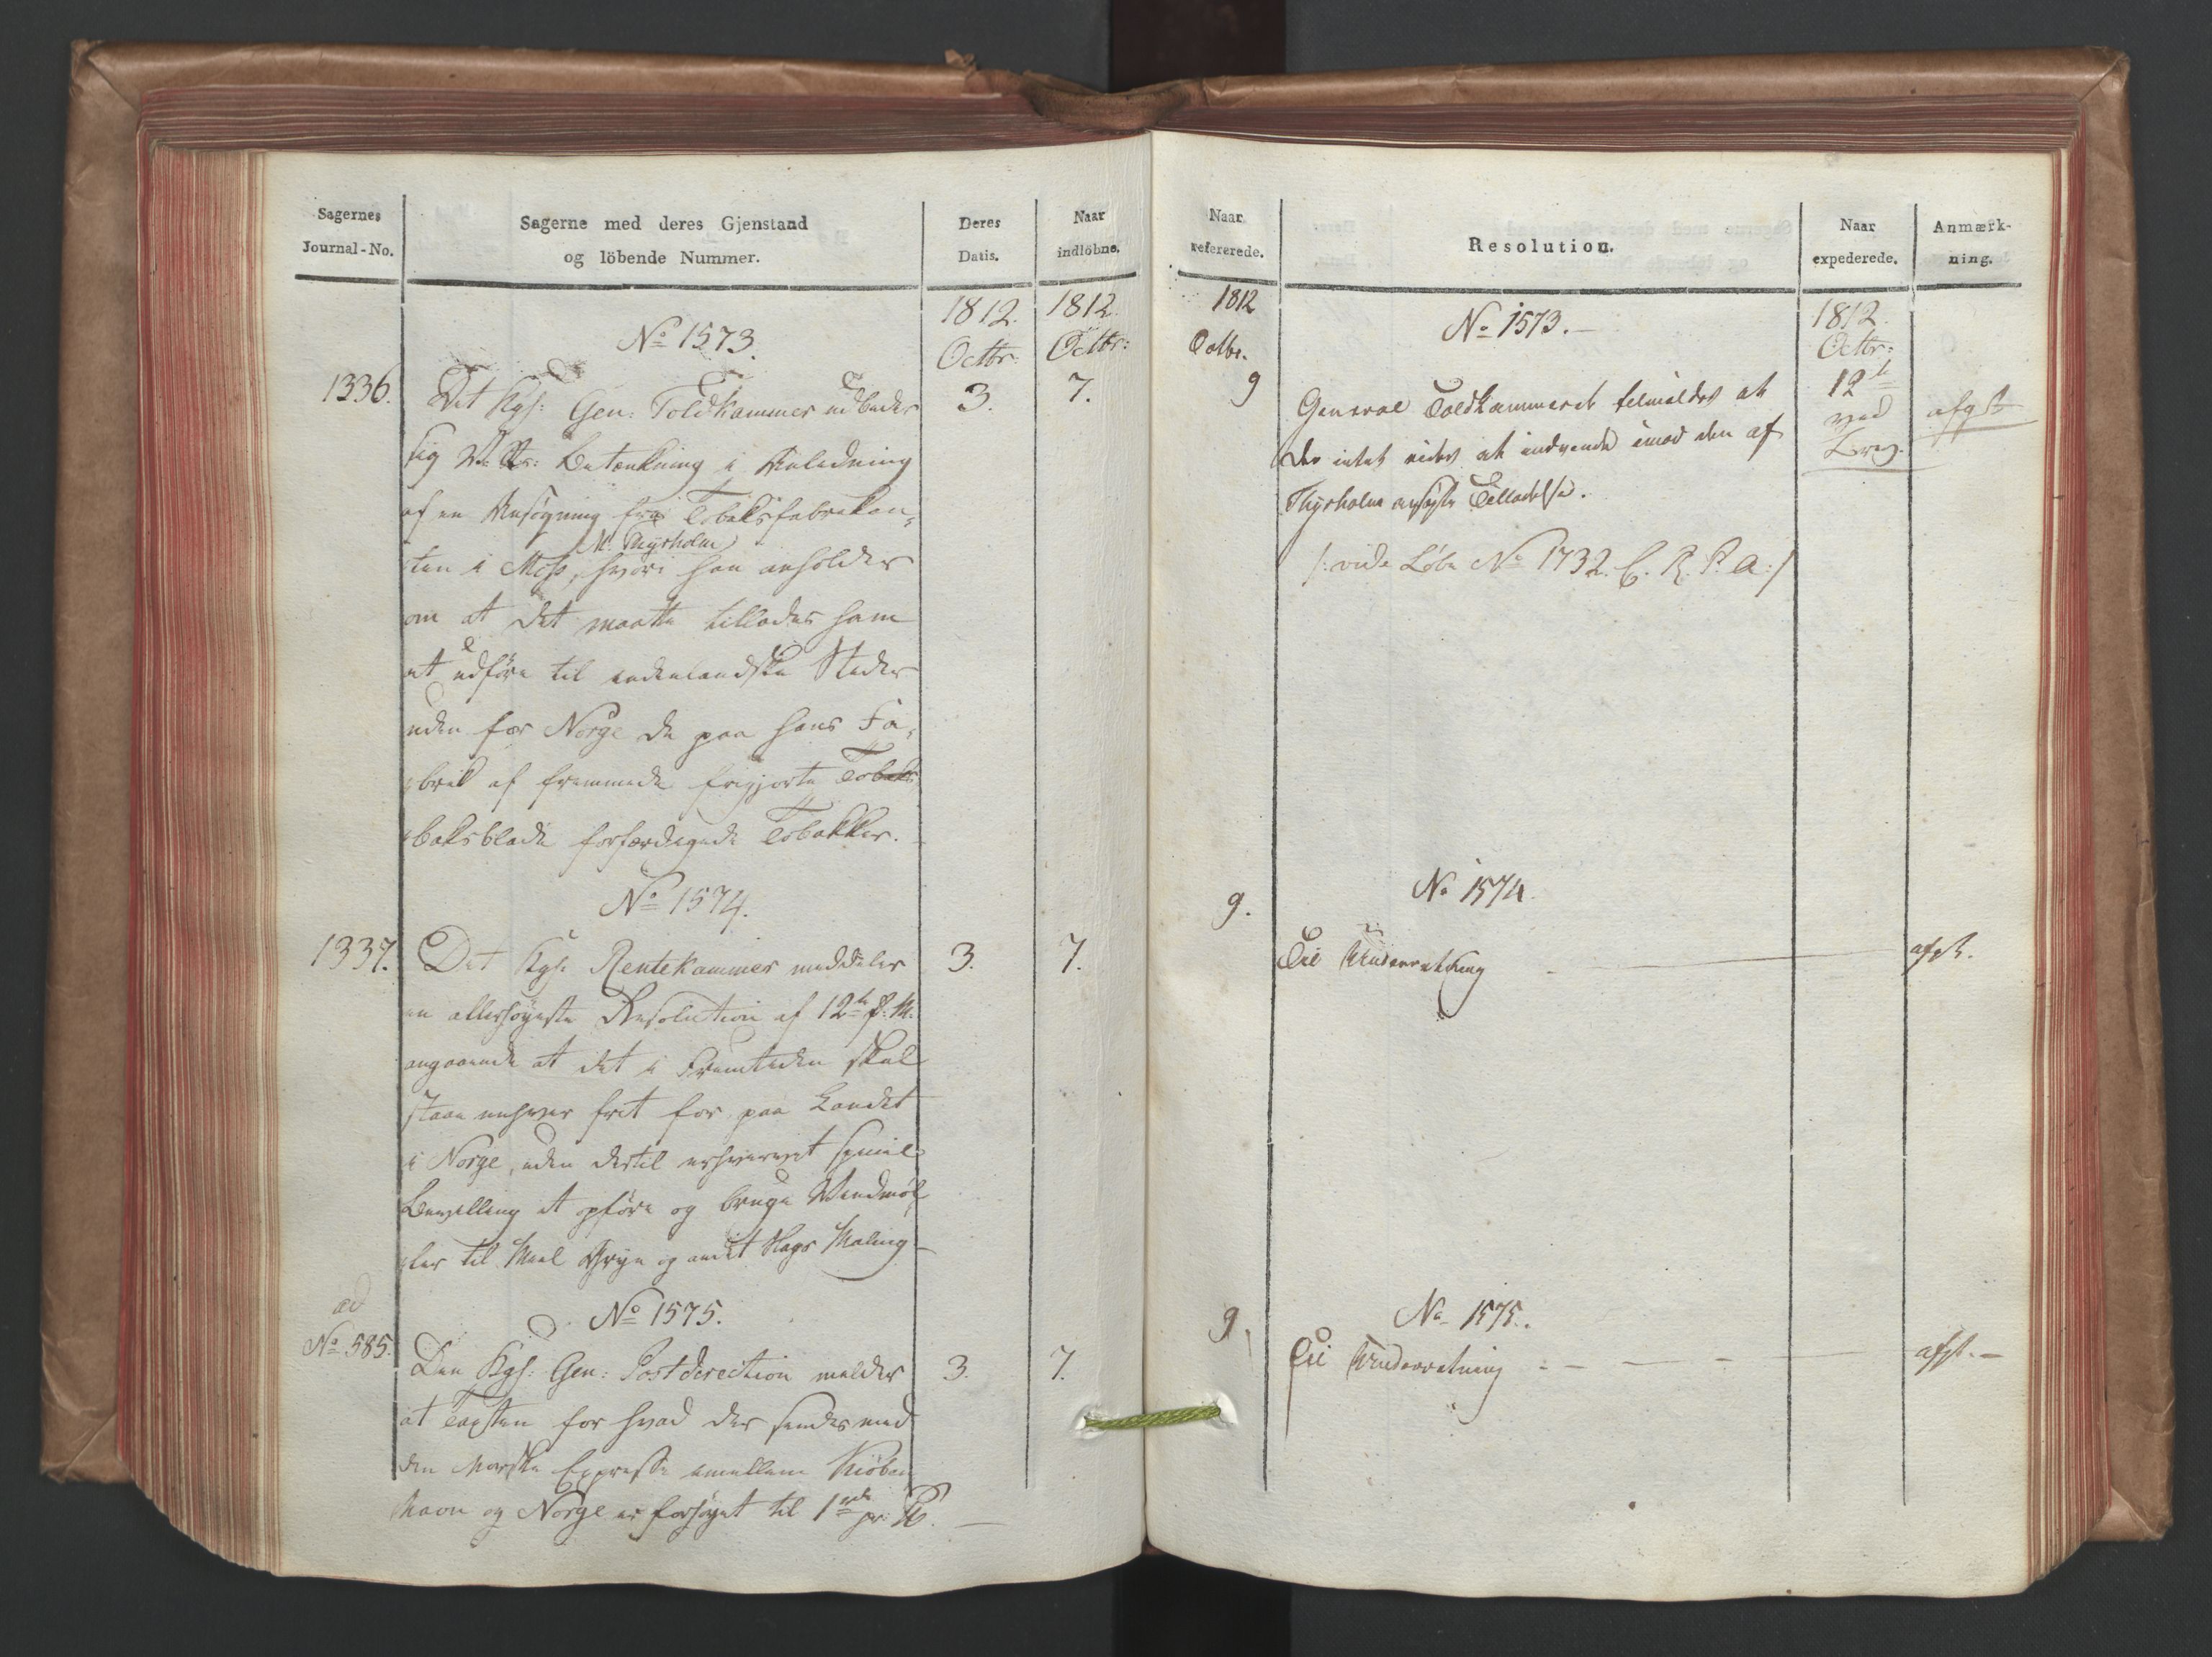 Sagernes
Journal-No.
Sagerne med deres Gjenstand
og löbende Nummer.
Deres
Datis.
Naar
indlöbne.
1812.
Octbr:
1812.
Octbr:
No 1573.
1336.
3.
7.
Det Kgl: Gen: Toldkammer udbeder
sig Betænkning i Anledning
af en Ansøgning fra Tobaksfabrikan-
M. Thyrholm
ten i Moss, hvori han anholder
om at det maatte tillades ham
at udføre til indenlandske Steder
uden for Norge de paa hans Fa-
brik af fremmede frigjorte Tobaks
baksblade forfærdigede Tobakker.
No 1574.
1337.
3.
7.
Det Kgl. Rentekammer meddeler
en allerhøyeste Resolution af 12te f: M.
angaaende at det i Fremtiden skal
staae enhver frit for paa Landet
i Norge, uden dertil erhvervet speciel
Bevilling at opføre og bruge Windmøl-
ler til Meel Gryn og andet Slags Maling
ad
No 585.
No 1575.
3.
7.
Den Kgl: Gen: Postdirection melder
at Taxten for hvad der sendes med
den Norske Expresse imellem Kiöben
havn og Norge er forhøyet til 1 rdr pr
Naar
refererede.
Resolution.
Naar
expederede.
Anmærk-
ning.
1812
Octbr.
9
No 1573.
1812.
Octbr:
12te
ved
Brev.
afgt
General Toldkammeret tilmeldes at
der intet vides at indvende imod den af
Thyrholm ansøgte Tilladelse.
/: vide Løbe No 1732. C. R. P. A:/
9.
No 1574.
Til Underretning
afgt.
9.
No 1575.
Til Underretning
afgt.